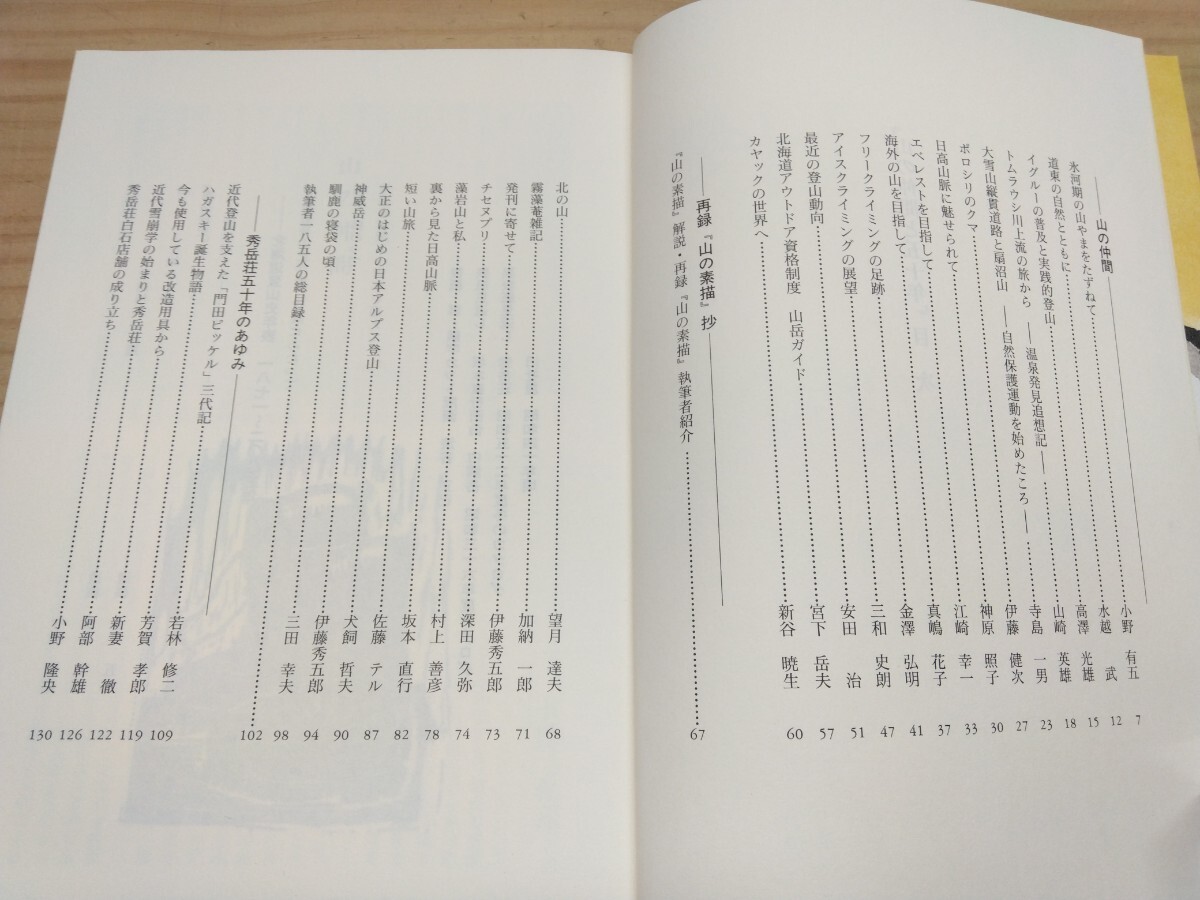 ——山の仲間——
氷河期の山やまをたずねて…………小野 有五 7
道東の自然とともに…………水越 武 12
イグルーの普及と実践的登山…………高澤 光雄 15
トムラウシ川上流の旅から ——温泉発見追想記——…………山崎 英雄 18
大雪山縦貫道路と扇沼山 ——自然保護運動を始めたころ——…………寺島 一男 23
ポロシリのクマ…………伊藤 健次 27
日高山脈に魅せられて…………神原 照子 30
エベレストを目指して…………江崎 幸一 33
海外の山を目指して…………真嶋 花子 37
フリークライミングの足跡…………金澤 弘明 41
アイスクライミングの展望…………三和 史朗 47
最近の登山動向…………安田 治 51
北海道アウトドア資格制度 山岳ガイド…………宮下 岳夫 57
カヤックの世界へ…………新谷 暁生 60
——再録『山の素描』抄——
『山の素描』解説・再録『山の素描』執筆者紹介…………67
北の山…………望月 達夫 68
霧藻菴雑記…………加納 一郎 71
発刊に寄せて…………伊藤秀五郎 73
チセヌプリ…………深田 久弥 74
藻岩山と私…………村上 善彦 78
裏から見た日高山脈…………坂本 直行 82
短い山旅…………佐藤 テル 87
大正のはじめの日本アルプス登山…………犬飼 哲夫 90
神威岳…………伊藤秀五郎 94
馴鹿の寝袋の頃…………三田 幸夫 98
執筆者一八五人の総目録…………102
——秀岳荘五十年のあゆみ——
近代登山を支えた「門田ピッケル」三代記…………若林 修二 109
ハガスキー誕生物語…………芳賀 孝郎 119
今も使用している改造用具から…………新妻 徹 122
近代雪崩学の始まりと秀岳荘…………阿部 幹雄 126
秀岳荘白石店舗の成り立ち…………小野 隆央 130